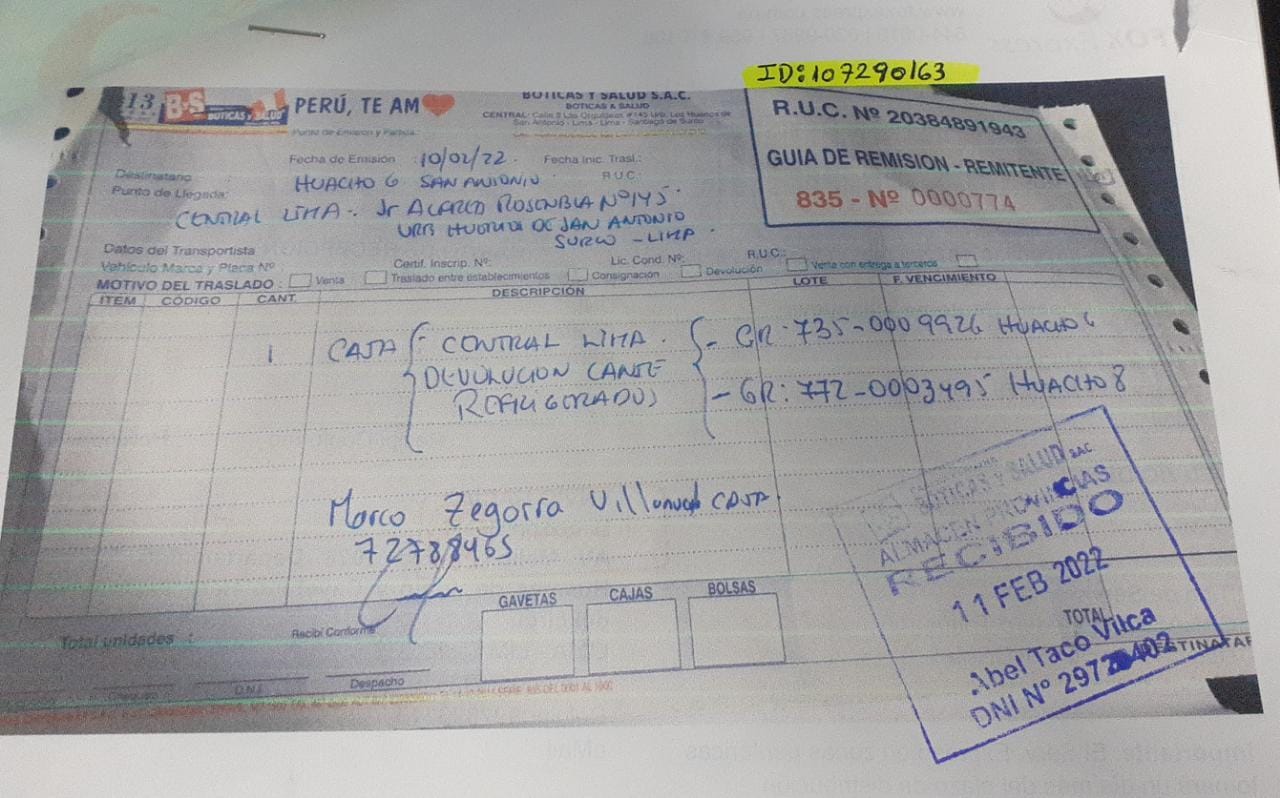 ID:107290163
13 B·S BOTICAS y SALUD PERÚ, TE AM
BOTICAS Y SALUD S.A.C.
BOTICAS & SALUD
San Antonio - Lima - Lima - Santiago de Surco
Punto de Emision y Partida:
R.U.C. Nº 20384891943
GUIA DE REMISION - REMITENTE
835 - Nº 0000774
Fecha de Emisión : 10/02/22. Fecha Inic. Trasl.:
Destinatario HUACHO 6 SAN ANTONIO R.U.C:
Punto de Llegada:
CENTRAL LIMA - Jr ALFREDO Nº145.
URB DE SAN ANTONIO
SURCO - LIMA.
Datos del Transportista
Vehículo Marca y Placa Nº Certif. Inscrip. Nº: Lic. Cond. Nº: R.U.C.:
MOTIVO DEL TRASLADO : Venta Traslado entre establecimientos Consignación Devolución Venta con entrega a terceros
ITEM CÓDIGO CANT. DESCRIPCIÓN LOTE F. VENCIMIENTO
1 CAJA { - CENTRAL LIMA. { - GR: 735-0009926 HUACHO 6
DEVOLUCION CANJE
REFRIGERADOS - GR: 772-0003495 HUACHO 8
Marco Zegorra CAJA
72788465
BOTICAS Y SALUD SAC
ALMACEN PROVINCIAS
RECIBIDO
11 FEB 2022
Abel Taco Vilca
DNI Nº
TOTAL
GAVETAS CAJAS BOLSAS
Total unidades : Recibí Conforme
D.N.I. Despacho